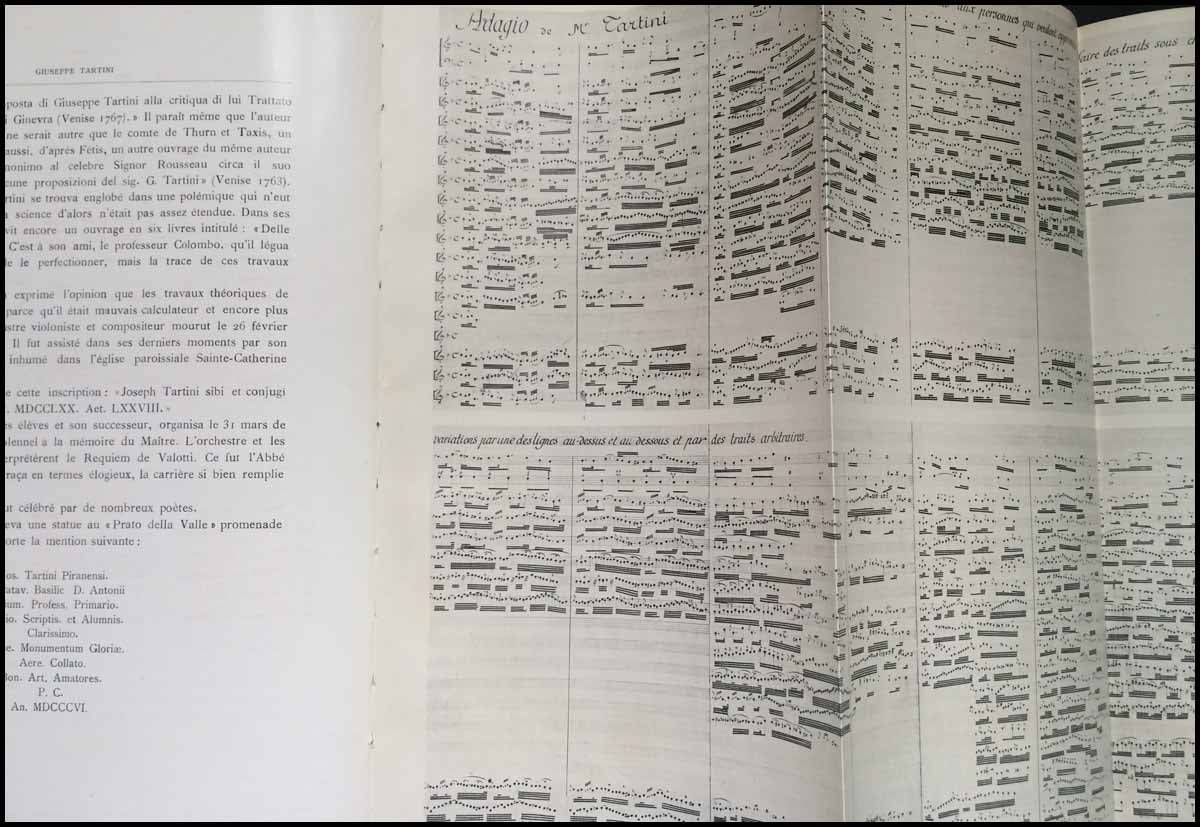 GIUSEPPE TARTINI
posta di Giuseppe Tartini alla critiqua di lui Trattato
i Ginevra (Venise 1767).» Il paraît même que l'auteur
ne serait autre que le comte de Thurn et Taxis, un
aussi, d'après Fétis, un autre ouvrage du même auteur
nonimo al celebre Signor Rousseau circa il suo
cune proposizioni del sig. G. Tartini» (Venise 1763).
rtini se trouva englobé dans une polémique qui n'eut
a science d'alors n'était pas assez étendue. Dans ses
vit encore un ouvrage en six livres intitulé : «Delle
C'est à son ami, le professeur Colombo, qu'il légua
le le perfectionner, mais la trace de ces travaux
exprimé l'opinion que les travaux théoriques de
parce qu'il était mauvais calculateur et encore plus
ustre violoniste et compositeur mourut le 26 février
Il fut assisté dans ses derniers moments par son
inhumé dans l'église paroissiale Sainte-Catherine
e cette inscription : «Joseph Tartini sibi et conjugi
. MDCCLXX. Aet. LXXVIII.»
es élèves et son successeur, organisa le 31 mars de
olennel à la mémoire du Maître. L'orchestre et les
erprétèrent le Requiem de Valotti. Ce fut l'Abbé
raça en termes élogieux, la carrière si bien remplie
ut célébré par de nombreux poètes.
eva une statue au «Prato della Valle» promenade
orte la mention suivante :
os. Tartini Piranensi.
atav. Basilic D. Antonii
um. Profess. Primario.
io. Scriptis. et Alumnis.
Clarissimo.
e. Monumentum Gloriæ.
Aere. Collato.
on. Art. Amatores.
P. C.
An. MDCCCVI.
Adagio de Mr Tartini
aux personnes qui veulent
faire des traits sous
variations par une des lignes au-dessus et au dessous et par des traits arbitraires.